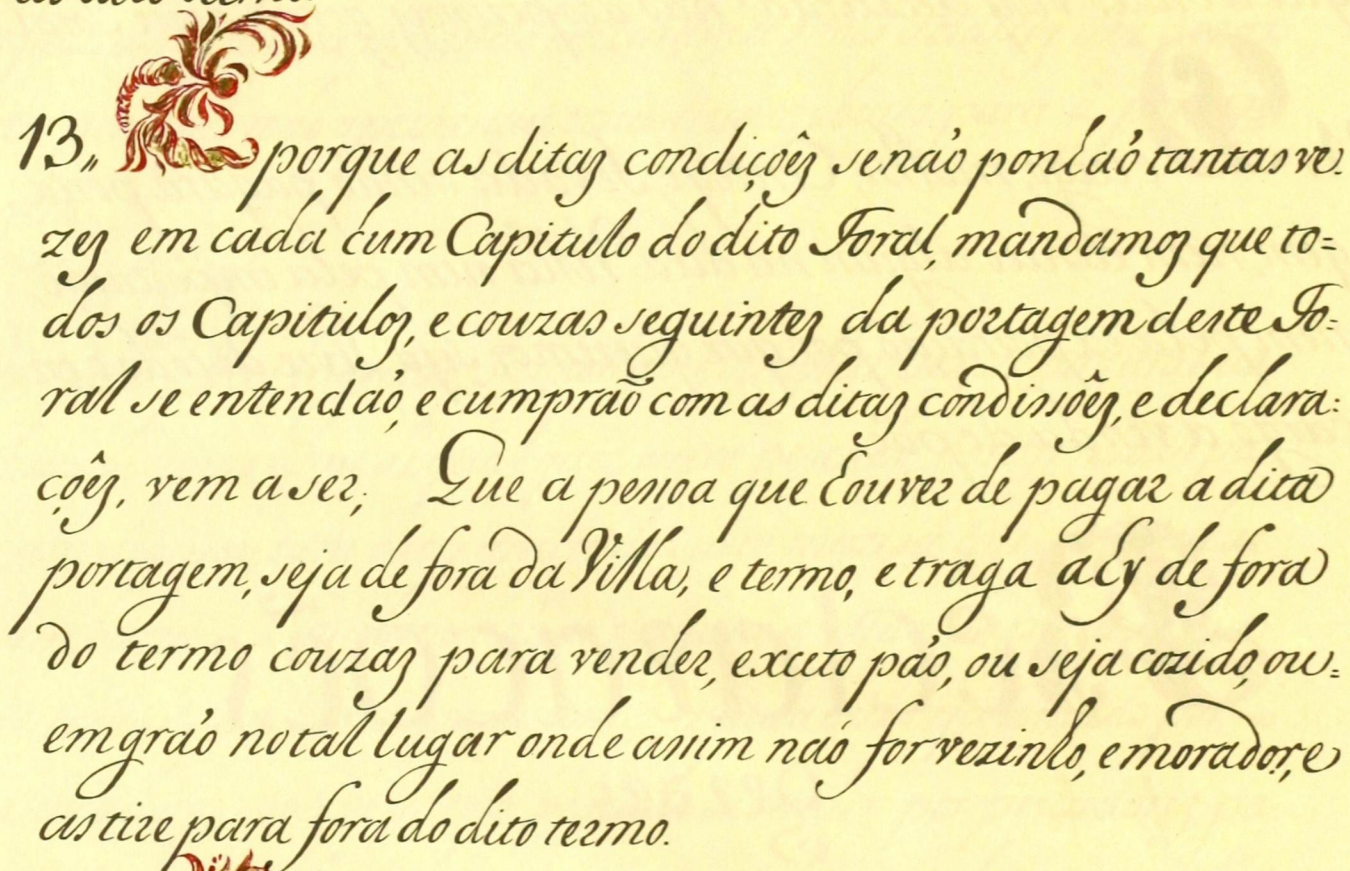 13,, E porque as ditas condiçoês se naõ ponhaõ tantas ve:
zes em cada hum Capitulo do dito Foral, mandamos que to=
dos os Capitulos, e couzas seguintes da portagem deste Fo:
ral se entendaõ, e cumpraõ com as ditas condissoês, e declara:
çoês, vem a ser; Que a pessoa que houver de pagar a dita
portagem, seja de fora da Villa, e termo, e traga ahy de fora
do termo couzas para vender, exceto paõ, ou seja cozido, ou=
em graõ no tal lugar onde assim naõ for vezinho, e morador, e
as tire para fora do dito termo.